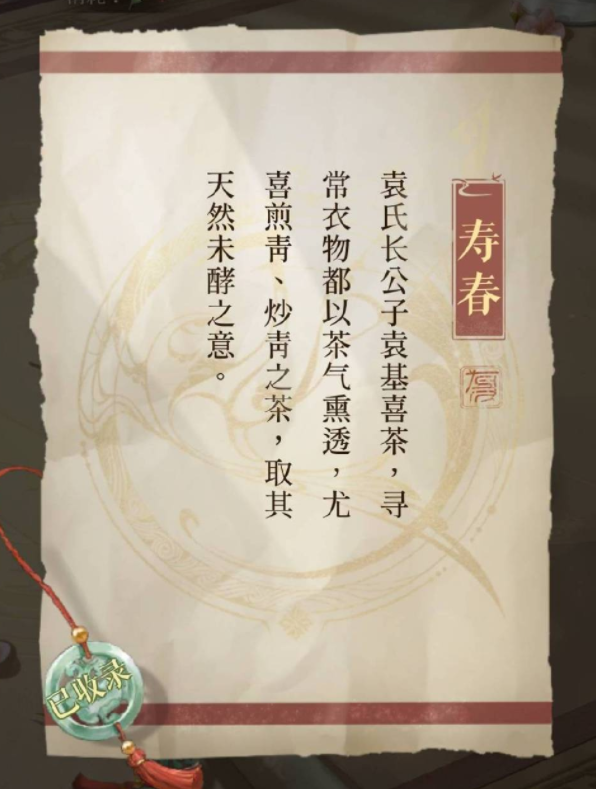 寿春
袁氏长公子袁基喜茶，寻
常衣物都以茶气熏透，尤
喜煎青、炒青之茶，取其
天然未酵之意。
已收录